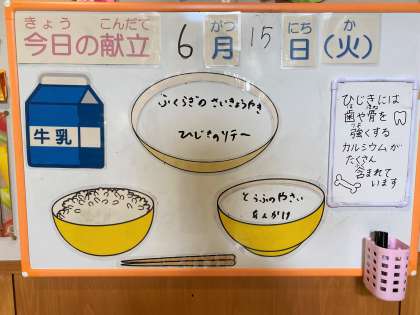 きょう こんだて
今日の献立
6 月 15 日 (火)
がつ にち か
牛乳
ふくらぎのさいきょうやき
ひじきのソテー
とうふのやさい
あんかけ
ひじきには
歯や骨を
強くする
カルシウムが
たくさん
含まれて
います